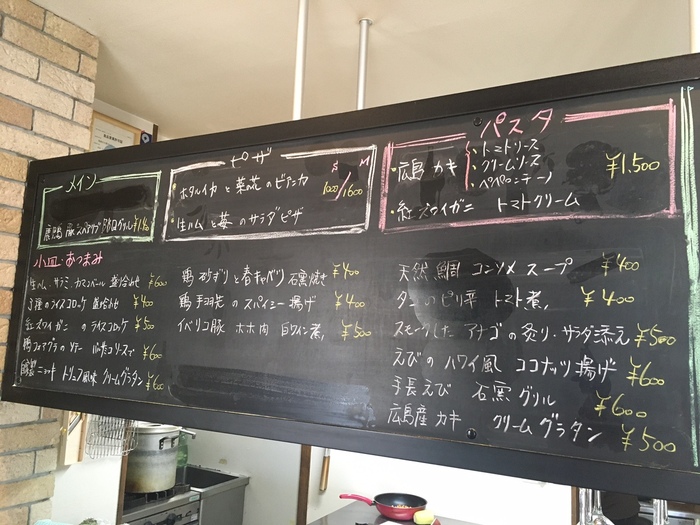 メイン
豚 スペアリブ グリル ¥1,100
ピザ
S M
ホタルイカ と 菜の花 の ビアンカ
生ハム と 苺 の サラダピザ
1000/1600
パスタ
広島 カキ
・トマトソース
・クリームソース
・ペペロンチーノ
¥1,500
紅ズワイガニ トマトクリーム
小皿・おつまみ
生ハム、サラミ、カマンベール 盛合わせ ¥600
3種のライスコロッケ 盛合わせ ¥400
紅ズワイガニ の ライスコロッケ ¥500
鴨フォアグラの ソテー ソースで ¥600
自家製ニョッキ トリュフ風味 クリームグラタン ¥600
鶏 砂ずり と春キャベツ 石窯焼き ¥400
鶏 手羽先 の スパイシー 揚げ ¥400
イベリコ豚 ホホ肉 白ワイン煮 ¥500
天然 鯛 コンソメ スープ ¥400
タコ の ピリ辛 トマト煮 ¥400
スモークした アナゴの炙り・サラダ添え ¥500
えびの ハワイ風 ココナッツ揚げ ¥600
手長えび 石窯グリル ¥600
広島産 カキ クリームグラタン ¥500